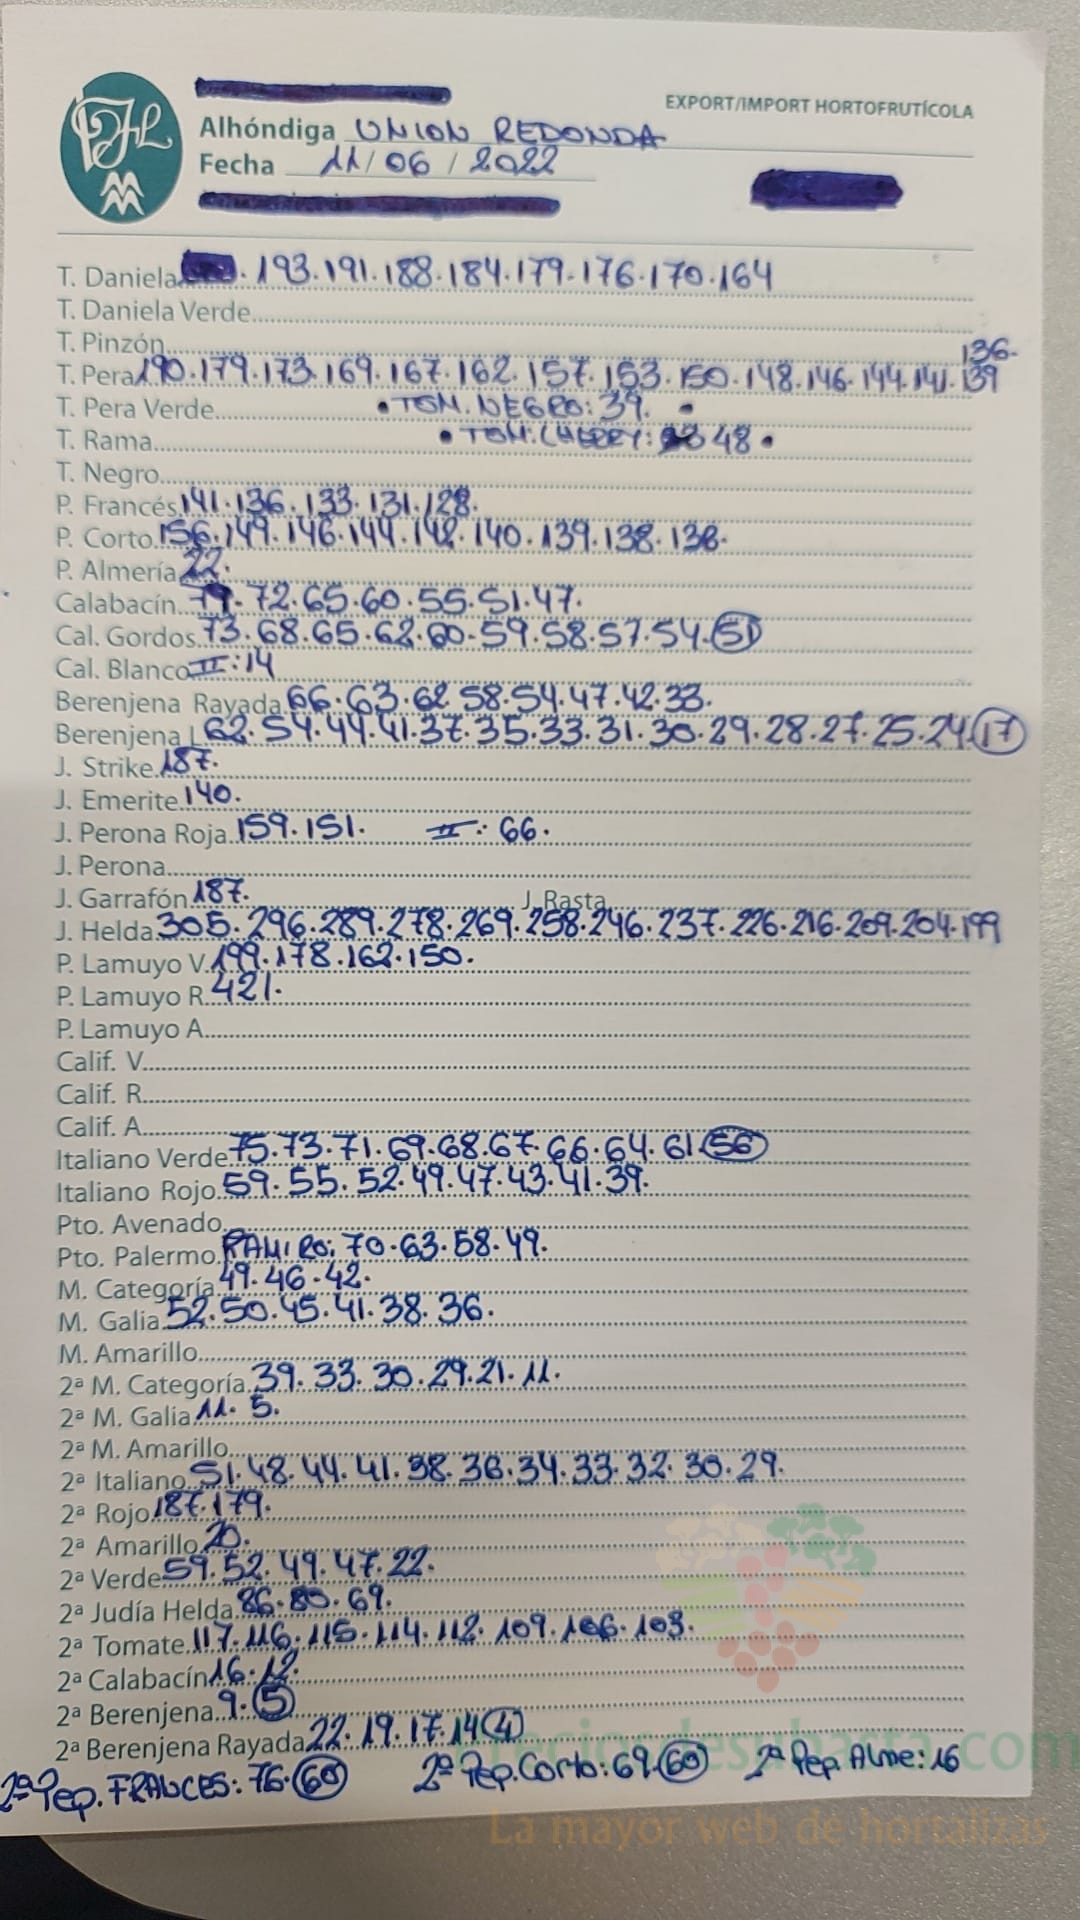 EXPORT/IMPORT HORTOFRUTÍCOLA
Alhóndiga UNION REDONDA
Fecha 11/06/2022
T. Daniela 193.191.188.184.179.176.170.164
T. Daniela Verde
T. Pinzón
136.
T. Pera 190.179.173.169.167.162.157.153.150.148.146.144.141.139
T. Pera Verde • TOM. NEGRO: 39. •
T. Rama • TOM. CHERRY: 48 •
T. Negro
P. Francés 141.136.133.131.128.
P. Corto 156.149.146.144.142.140.139.138.136.
P. Almería 22.
Calabacín 72.65.60.55.51.47.
Cal. Gordos 73.68.65.62.60.59.58.57.54.51
Cal. Blanco II: 14
Berenjena Rayada 66.63.62.58.54.47.42.33.
Berenjena L 62.54.44.41.37.35.33.31.30.29.28.27.25.24.17
J. Strike 187.
J. Emerite 140.
J. Perona Roja 159.151. II: 66.
J. Perona
J. Garrafón 187. J. Rasta
J. Helda 305.296.289.278.269.258.246.237.226.216.209.204.199
P. Lamuyo V. 199.178.162.150.
P. Lamuyo R 421.
P. Lamuyo A
Calif. V
Calif. R
Calif. A
Italiano Verde 75.73.71.69.68.67.66.64.61.56
Italiano Rojo 59.55.52.49.47.43.41.39.
Pto. Avenado
Pto. Palermo RAMIRO: 70.63.58.49.
M. Categoría 49.46.42.
M. Galia 52.50.45.41.38.36.
M. Amarillo
2ª M. Categoría 39.33.30.29.21.11.
2ª M. Galia 11.5.
2ª M. Amarillo
2ª Italiano 51.48.44.41.38.36.34.33.32.30.29.
2ª Rojo 187.179.
2ª Amarillo 20.
2ª Verde 59.52.49.47.22.
2ª Judía Helda 86.80.69.
2ª Tomate 117.116.115.114.112.109.106.103.
2ª Calabacín 16.12.
2ª Berenjena 9.5
2ª Berenjena Rayada 22.19.17.14.4
2ª Pep. FRANCES: 76.60 2ª Pep. Corto: 69.60 2ª Pep. Alme: 16
preciosdesubasta.com
La mayor web de hortalizas